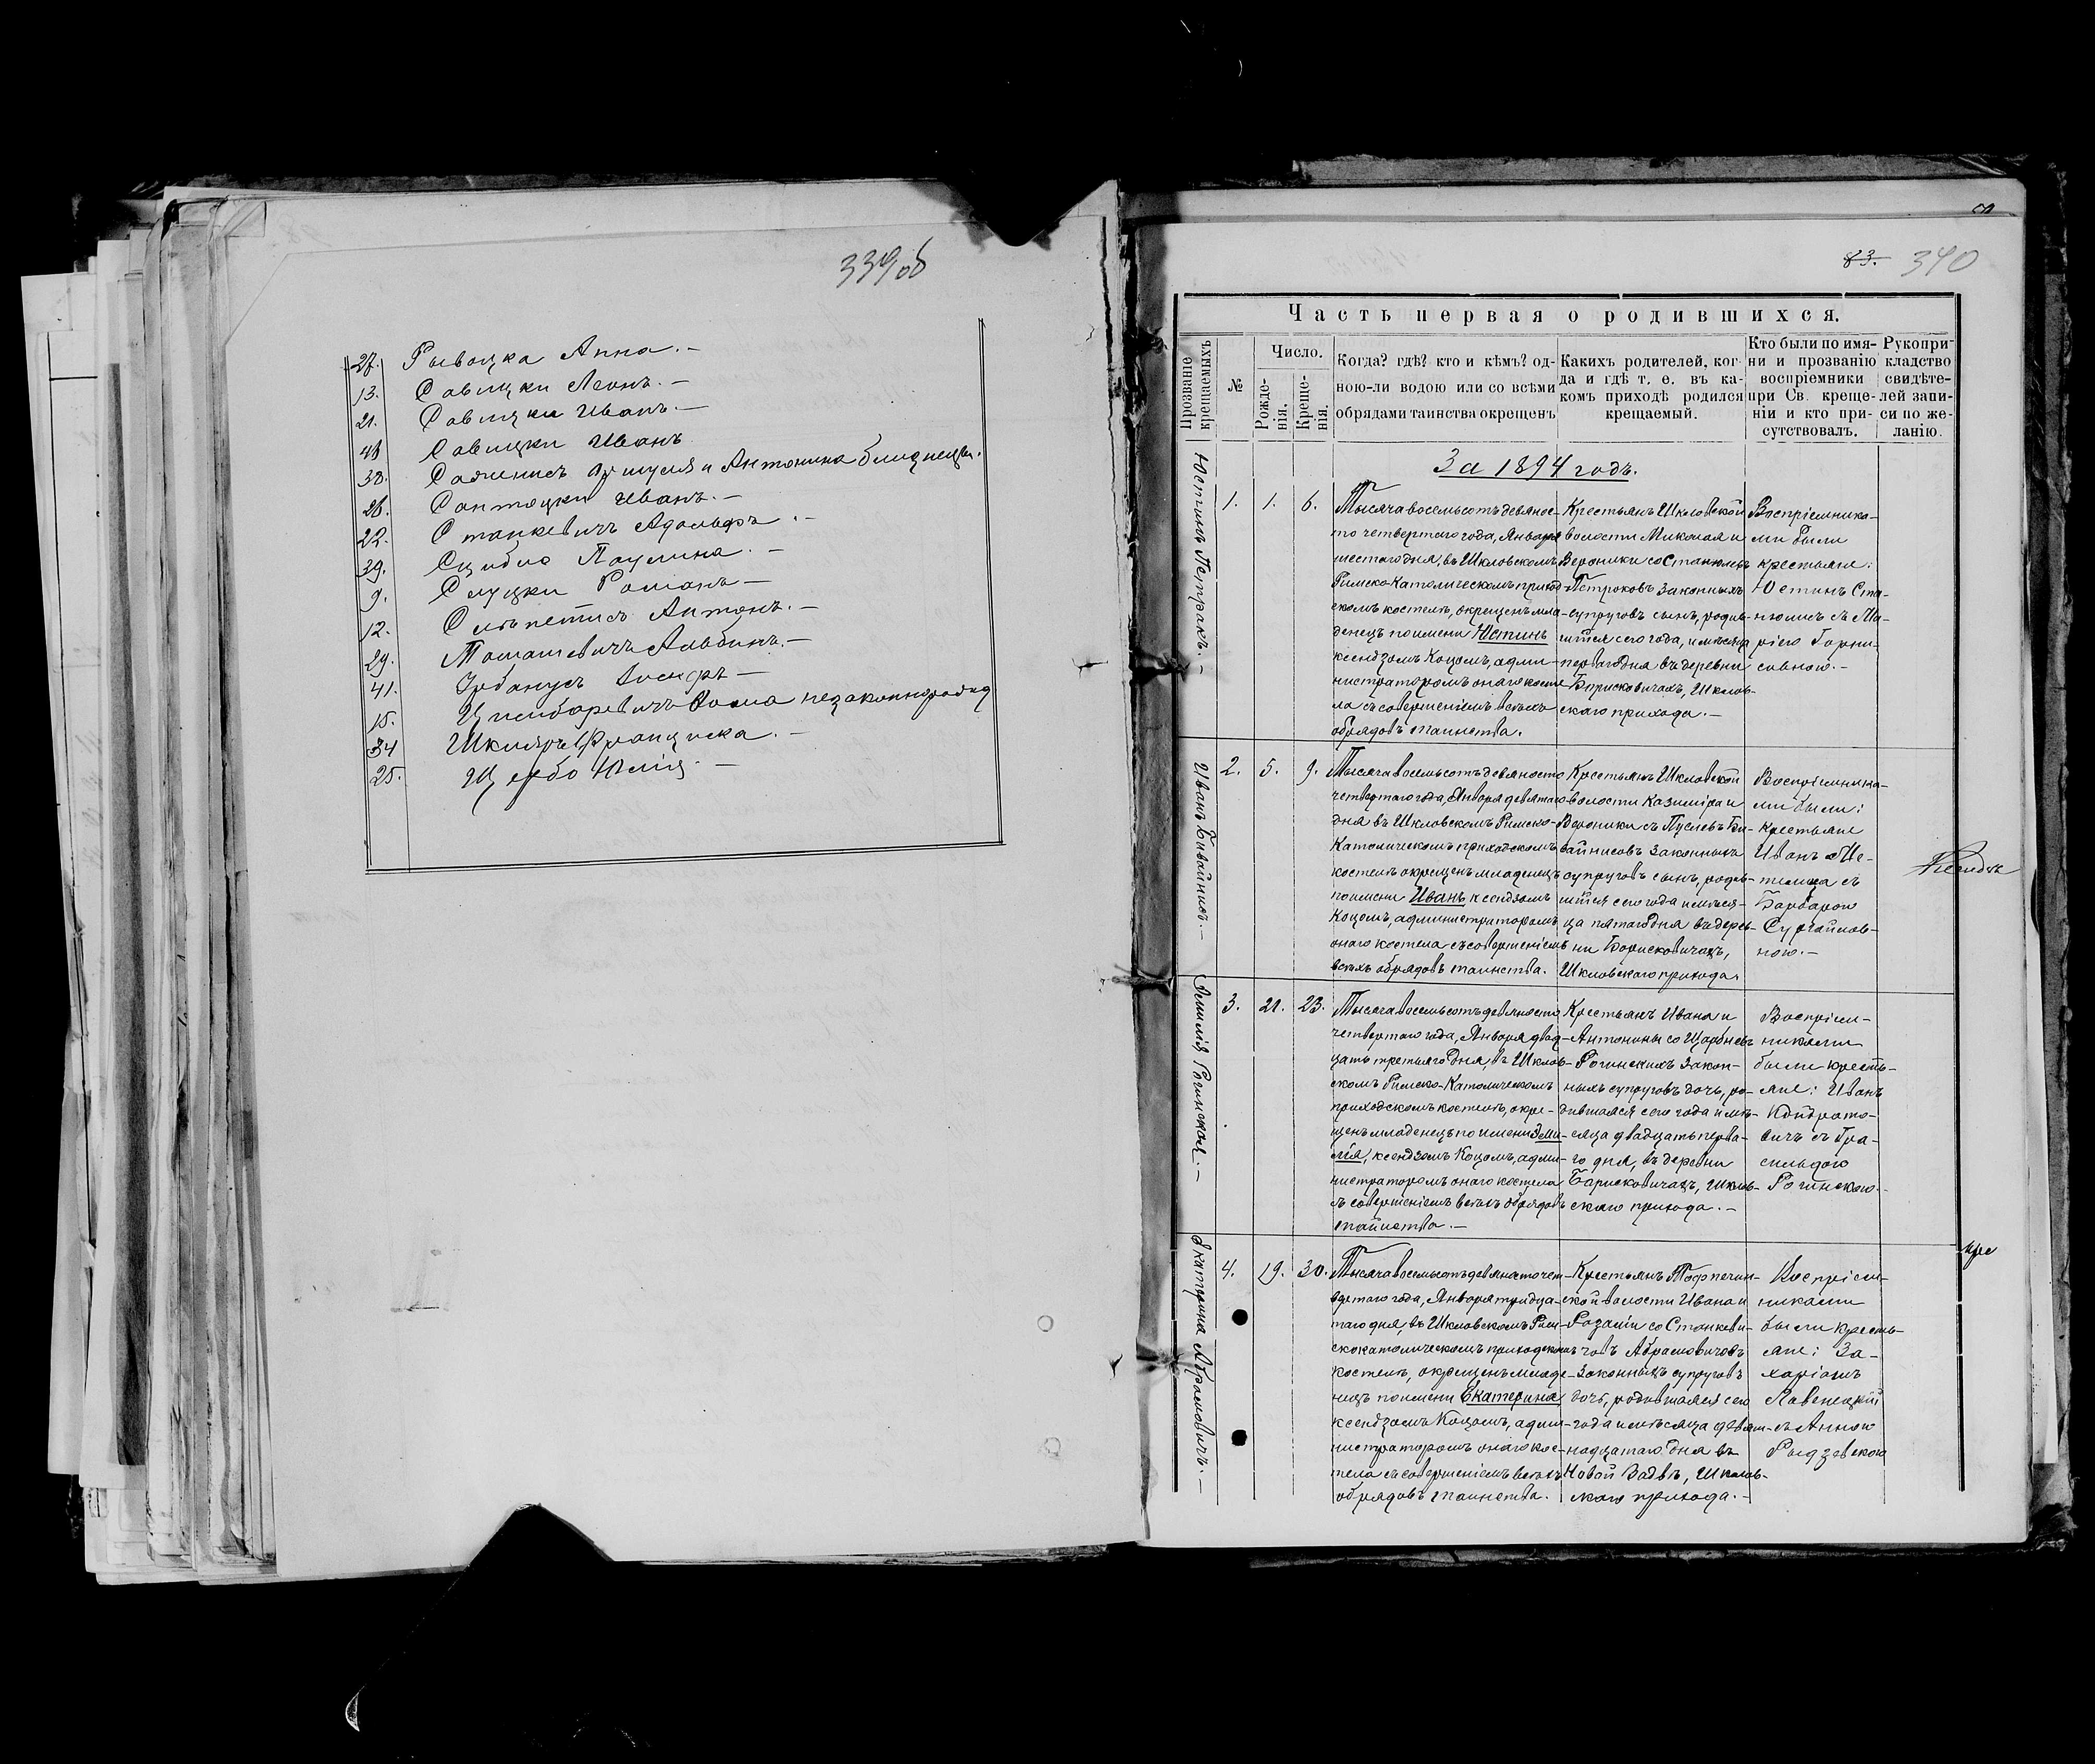 339 об
27. Рывацка Анна. —
13. Савицки Леонъ. —
21. Савицки Иванъ. —
48 Савицки Иванъ
38. и Антонина близнецы.
26. Иванъ. —
22. Станкевичъ Адольфъ. —
39. Сцибло Паулина. —
9. Слуцки Романъ —
12. Антонъ. —
29. Томашевичъ Альбинъ. —
41. Урбанусъ —
15. незаконнорожд
34 Шкляръ Франциска. —
25. Щербо Юлія. —
83. 340
Часть первая о родившихся.
Прозваніе крещаемыхъ
№
Число.
Рожде-
нія.
Креще-
нія.
Когда? гдѣ? кто и кѣмъ? од-
ною-ли водою или со всѣми
обрядами таинства окрещенъ
Какихъ родителей, ког-
да и гдѣ т. е. въ ка-
комъ приходѣ родился
крещаемый.
Кто были по имя-
ни и прозванію
воспріемники
при Св. креще-
ніи и кто при-
сутствовалъ.
Рукопри-
кладство
свидѣте-
лей запи-
си по же-
ланію.
За 1894 годъ.
Юстинъ Петракъ. —
1. 1. 6.
Тысяча восемьсотъ девянос-
то четвертаго года, Января
шестаго дня, въ Шкловскомъ
Римско-Католическомъ приход-
скомъ костелѣ, окрещенъ мла-
денецъ по имени Юстинъ
ксендзомъ Коцомъ, адми-
нистраторомъ онаго косте
ла съ совершеніемъ всѣхъ
обрядовъ таинства.
Крестьянъ Шкловской
волости Миколая и
Вероники со Станюлевъ
Петроковъ законныхъ
супруговъ сынъ, родив-
шійся сего года, и мѣсяца
перваго дня въ деревни
Борисковичахъ, Шклов-
скаго прихода. —
Воспріемника-
ми были
крестьяне:
Юстинъ Ста-
нюлисъ съ Ма-
ріею Борни-
совною. —
Иванъ Бивайнисъ. —
2. 5. 9.
Тысяча восемьсотъ девяносто
четвертаго года, Января девятаго
дня въ Шкловскомъ Римско-
Католическомъ приходскомъ
костелѣ окрещенъ младенецъ
по имени Иванъ ксендзомъ
Коцомъ, администраторомъ
онаго костела съ совершеніемъ
всѣхъ обрядовъ таинства.
Крестьянъ Шкловской
волости Казиміра и
Вероники съ Пуслевъ Би-
вайнисовъ законныхъ
супруговъ сынъ, родив-
шійся сего года и мѣся-
ца пятаго дня въ дерев-
ни Борисковичахъ,
Шкловскаго прихода.
Воспріемника-
ми были:
крестьяне
Иванъ Ше-
телица съ
Барбарою
Сургайлов-
ною. —
Эмилія Рогинская. —
3. 21. 23.
Тысяча восемьсотъ девяносто
четвертаго года, Января двад-
цать третьяго дня, въ Шклов-
скомъ Римско-Католическомъ
приходскомъ костелѣ, окре-
щенъ младенецъ по имени Эми-
лія, ксендзомъ Коцомъ, адми-
нистраторомъ онаго костела
съ совершеніемъ всѣхъ обрядовъ
таинства. —
Крестьянъ Ивана и
Антонины со Щарбнев
Рогинскихъ закон-
ныхъ супруговъ дочь, ро-
дившаяся сего года и мѣ-
сяца двадцать перва-
го дня, въ деревни
Барисковичахъ, Шклов-
скаго прихода. —
Воспріем-
никами
были кресть-
яне: Иванъ
Кондрато-
вичъ съ Гра-
сильдою
Рогинскою. —
Екатерина Абрамовичъ. —
4. 19. 30.
Тысяча восемьсотъ девяносто чет-
вертаго года, Января тридца-
таго дня, въ Шкловскомъ Рим-
скокатолическомъ приходскомъ
костелѣ, окрещенъ младе-
нецъ по имени Екатерина
ксендзомъ Коцомъ, адми-
нистраторомъ онаго кос-
тела съ совершеніемъ всѣхъ
обрядовъ таинства.
Крестьянъ
ской волости Ивана и
Розаліи со Станкеви-
човъ Абрамовичовъ
законныхъ супруговъ
дочь, родившаяся сего
года и мѣсяца девят-
надцатаго дня въ
Новой Водвѣ, Шклов-
скаго прихода. —
Воспріем-
никами
были кресть-
яне: За-
харіашъ
Лавенецкій
съ Анною
Рыдзевскою